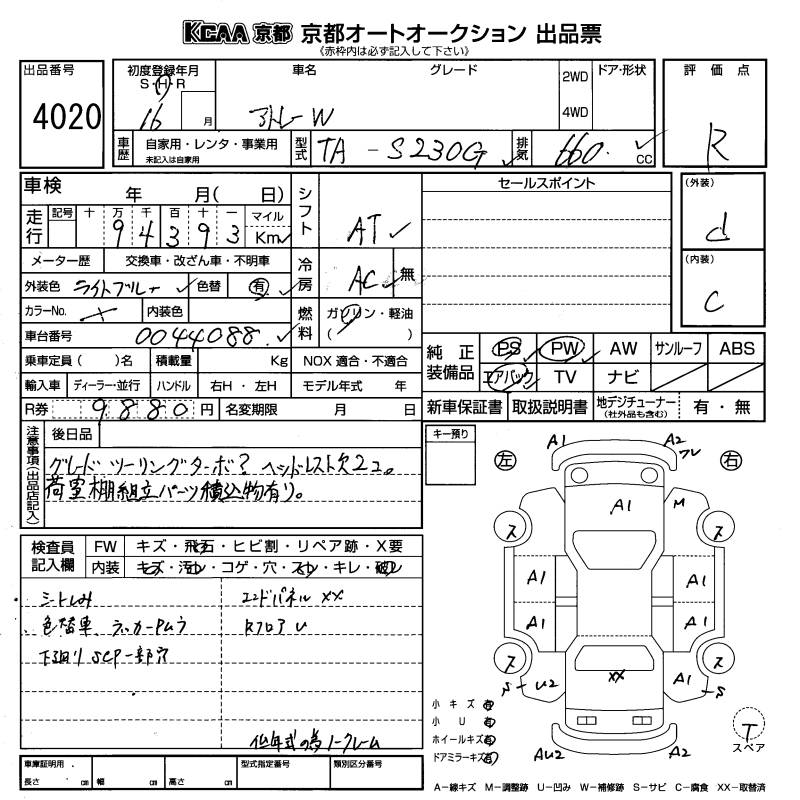 KCAA 京都 京都オートオークション 出品票
《赤枠内は必ず記入して下さい》
出品番号
4020
初度登録年月
S・H・R
16 月
車名 グレード
アトレーW
2WD
4WD
ドア・形状
評価点
R
車歴
自家用・レンタ・事業用
未記入は自家用
型式
TA - S230G
排気
660. CC
車検 年 月( 日)
走行
記号 十 万 千 百 十 一 マイル
9 4 3 9 3 Km
メーター歴 交換車・改ざん車・不明車
外装色 ライトブルー 色替 有
カラーNo. 内装色
車台番号 0044088.
乗車定員( )名 積載量 Kg
輸入車 ディーラー・並行 ハンドル 右H・左H
R券 9880 円 名変期限 月 日
シフト
AT
冷房
AC 無
燃料
ガソリン・軽油
( )
NOX 適合・不適合
モデル年式 年
セールスポイント
(外装)
d
(内装)
C
純正装備品
PS PW AW サンルーフ ABS
エアバック TV ナビ
新車保証書 取扱説明書 地デジチューナー (社外品も含む) 有・無
注意事項(出品店記入)
後日品
グレード ツーリングターボ? ヘッドレスト欠2コ。
荷室棚組立パーツ積込物有り。
キー預り
検査員記入欄
FW キズ・飛石・ヒビ割・リペア跡・X要
内装 キズ・汚れ・コゲ・穴・スレ・キレ・破れ
・シートしみ
・色替車 ラッカーPムラ
下廻りSCP一部穴
エンドパネル XX
Rフロア U
低年式の為ノークレーム
左 右
A1
A2
フレ
A1
M
ス ス
A1 A1
A1 A1
ス ス
S - U2
XX
A1
S
AU2
A2
小キズ 有
小U 有
ホイールキズ 有
ドアミラーキズ 有
T
スペア
A-線キズ M-調整跡 U-凹み W-補修跡 S-サビ C-腐食 XX-取替済
車庫証明用
長さ cm 幅 cm 高さ cm
型式指定番号
類別区分番号